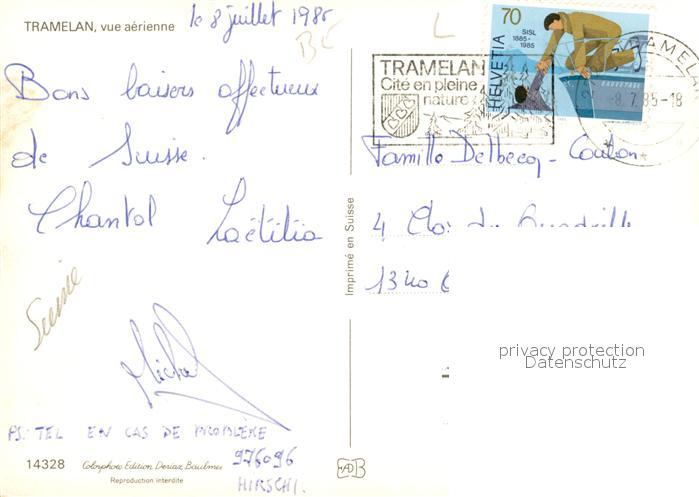 TRAMELAN, vue aérienne
le 8 juillet 1985
Bons baisers affectueux
de Suisse.
Chantal Laëtitia
Suisse
Michel
PS: TEL EN CAS DE PROBLÈME
976096
HIRSCHI.
14328 Colorphoto Edition Deriaz, Baulmes
Reproduction interdite
Imprimé en Suisse
70
SISL
1885-
1985
HELVETIA
SAUVETAGE
TRAMELAN
Cité en pleine
nature
TRAMELAN
-8.7.85-18
Famille Delbecq - Coulon
4 Clos du Quadrille
privacy protection
Datenschutz